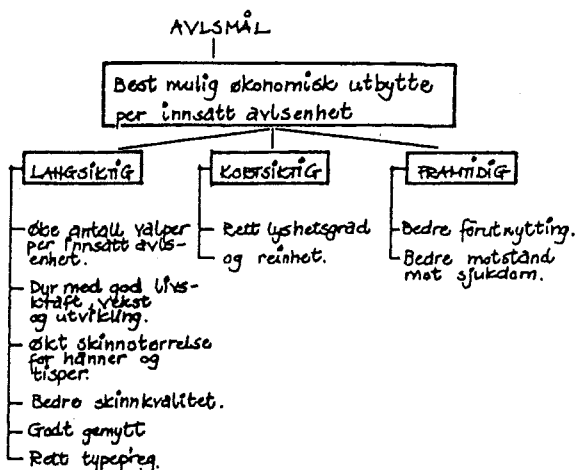 AVLSMÅL
Best mulig økonomisk utbytte
per innsatt avlsenhet
LANGSIKTIG
KORTSIKTIG
FRAMTIDIG
Øke antall valper
per innsatt avls-
enhet.
Dyr med god livs-
kraft, vekst
og utvikling.
Økt skinnstørrelse
for hanner og
tisper.
Bedre skinnkvalitet.
Godt gemytt
Rett typepreg.
Rett lyshetsgrad
og reinhet.
Bedre fôrutnytting.
Bedre motstand
mot sjukdom.